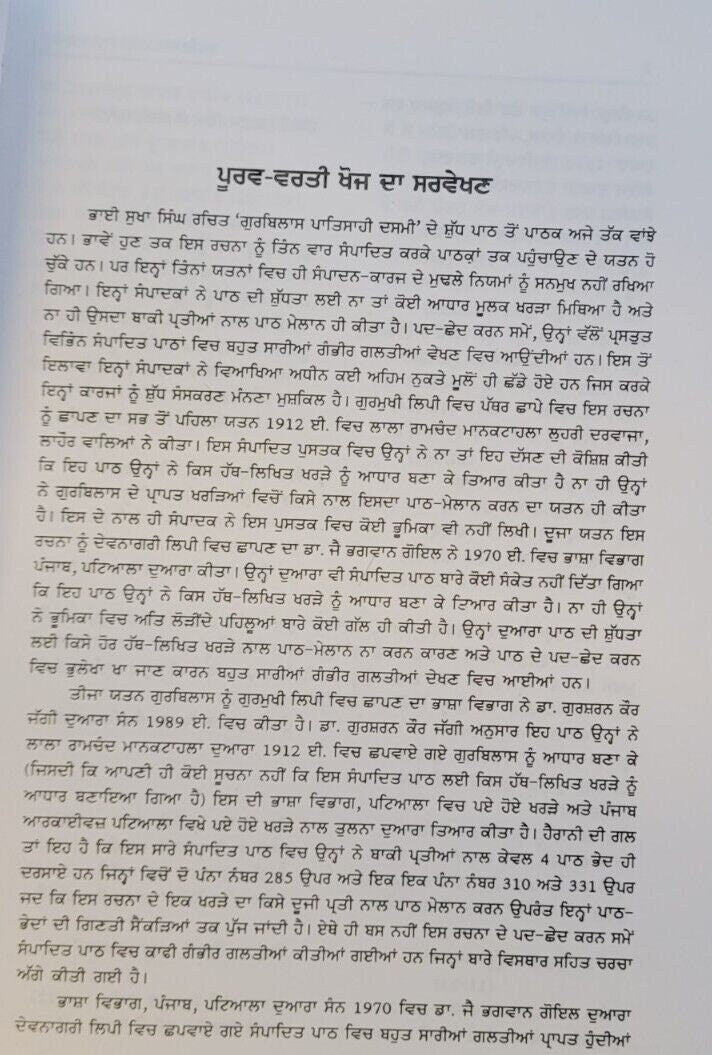 ਪੂਰਵ-ਵਰਤੀ ਖੋਜ ਦਾ ਸਰਵੇਖਣ
ਭਾਈ ਸੁਖਾ ਸਿੰਘ ਰਚਿਤ 'ਗੁਰਬਿਲਾਸ ਪਾਤਿਸਾਹੀ ਦਸਮੀ' ਦੇ ਸ਼ੁੱਧ ਪਾਠ ਤੋਂ ਪਾਠਕ ਅਜੇ ਤੱਕ ਵਾਂਝੇ
ਹਨ। ਭਾਵੇਂ ਹੁਣ ਤਕ ਇਸ ਰਚਨਾ ਨੂੰ ਤਿੰਨ ਵਾਰ ਸੰਪਾਦਿਤ ਕਰਕੇ ਪਾਠਕਾਂ ਤਕ ਪਹੁੰਚਾਉਣ ਦੇ ਯਤਨ ਹੋ
ਚੁੱਕੇ ਹਨ। ਪਰ ਇਨ੍ਹਾਂ ਤਿੰਨਾਂ ਯਤਨਾਂ ਵਿਚ ਹੀ ਸੰਪਾਦਨ-ਕਾਰਜ ਦੇ ਮੁਢਲੇ ਨਿਯਮਾਂ ਨੂੰ ਸਨਮੁਖ ਨਹੀਂ ਰਖਿਆ
ਗਿਆ। ਇਨ੍ਹਾਂ ਸੰਪਾਦਕਾਂ ਨੇ ਪਾਠ ਦੀ ਸ਼ੁੱਧਤਾ ਲਈ ਨਾ ਤਾਂ ਕੋਈ ਆਧਾਰ ਮੂਲਕ ਖਰੜਾ ਮਿਥਿਆ ਹੈ ਅਤੇ
ਨਾ ਹੀ ਉਸਦਾ ਬਾਕੀ ਪ੍ਰਤੀਆਂ ਨਾਲ ਪਾਠ ਮੇਲਾਨ ਹੀ ਕੀਤਾ ਹੈ। ਪਦ-ਛੇਦ ਕਰਨ ਸਮੇਂ, ਉਨ੍ਹਾਂ ਵੱਲੋਂ ਪ੍ਰਸਤੁਤ
ਵਿਭਿੰਨ ਸੰਪਾਦਿਤ ਪਾਠਾਂ ਵਿਚ ਬਹੁਤ ਸਾਰੀਆਂ ਗੰਭੀਰ ਗਲਤੀਆਂ ਵੇਖਣ ਵਿਚ ਆਉਂਦੀਆਂ ਹਨ। ਇਸ ਤੋਂ
ਇਲਾਵਾ ਇਨ੍ਹਾਂ ਸੰਪਾਦਕਾਂ ਨੇ ਵਿਆਖਿਆ ਅਧੀਨ ਕਈ ਅਹਿਮ ਨੁਕਤੇ ਮੂਲੋਂ ਹੀ ਛੱਡੇ ਹੋਏ ਹਨ ਜਿਸ ਕਰਕੇ
ਇਨ੍ਹਾਂ ਕਾਰਜਾਂ ਨੂੰ ਸ਼ੁੱਧ ਸੰਸਕਰਣ ਮੰਨਣਾ ਮੁਸ਼ਕਿਲ ਹੈ। ਗੁਰਮੁਖੀ ਲਿਪੀ ਵਿਚ ਪੱਥਰ ਛਾਪੇ ਵਿਚ ਇਸ ਰਚਨਾ
ਨੂੰ ਛਾਪਣ ਦਾ ਸਭ ਤੋਂ ਪਹਿਲਾ ਯਤਨ 1912 ਈ. ਵਿਚ ਲਾਲਾ ਰਾਮਚੰਦ ਮਾਨਕਟਾਹਲਾ ਲੁਹਰੀ ਦਰਵਾਜਾ,
ਲਾਹੌਰ ਵਾਲਿਆਂ ਨੇ ਕੀਤਾ। ਇਸ ਸੰਪਾਦਿਤ ਪੁਸਤਕ ਵਿਚ ਉਨ੍ਹਾਂ ਨੇ ਨਾ ਤਾਂ ਇਹ ਦੱਸਣ ਦੀ ਕੋਸ਼ਿਸ਼ ਕੀਤੀ
ਕਿ ਇਹ ਪਾਠ ਉਨ੍ਹਾਂ ਨੇ ਕਿਸ ਹੱਥ-ਲਿਖਿਤ ਖਰੜੇ ਨੂੰ ਆਧਾਰ ਬਣਾ ਕੇ ਤਿਆਰ ਕੀਤਾ ਹੈ ਨਾ ਹੀ ਉਨ੍ਹਾਂ
ਨੇ ਗੁਰਬਿਲਾਸ ਦੇ ਪ੍ਰਾਪਤ ਖਰੜਿਆਂ ਵਿਚੋਂ ਕਿਸੇ ਨਾਲ ਇਸਦਾ ਪਾਠ-ਮੇਲਾਨ ਕਰਨ ਦਾ ਯਤਨ ਹੀ ਕੀਤਾ
ਹੈ। ਇਸ ਦੇ ਨਾਲ ਹੀ ਸੰਪਾਦਕ ਨੇ ਇਸ ਪੁਸਤਕ ਵਿਚ ਕੋਈ ਭੂਮਿਕਾ ਵੀ ਨਹੀਂ ਲਿਖੀ। ਦੂਜਾ ਯਤਨ ਇਸ
ਰਚਨਾ ਨੂੰ ਦੇਵਨਾਗਰੀ ਲਿਪੀ ਵਿਚ ਛਾਪਣ ਦਾ ਡਾ. ਜੈ ਭਗਵਾਨ ਗੋਇਲ ਨੇ 1970 ਈ. ਵਿਚ ਭਾਸ਼ਾ ਵਿਭਾਗ
ਪੰਜਾਬ, ਪਟਿਆਲਾ ਦੁਆਰਾ ਕੀਤਾ। ਉਨ੍ਹਾਂ ਦੁਆਰਾ ਵੀ ਸੰਪਾਦਿਤ ਪਾਠ ਬਾਰੇ ਕੋਈ ਸੰਕੇਤ ਨਹੀਂ ਦਿੱਤਾ ਗਿਆ
ਕਿ ਇਹ ਪਾਠ ਉਨ੍ਹਾਂ ਨੇ ਕਿਸ ਹੱਥ-ਲਿਖਿਤ ਖਰੜੇ ਨੂੰ ਆਧਾਰ ਬਣਾ ਕੇ ਟਿਆਰ ਕੀਤਾ ਹੈ। ਨਾ ਹੀ ਉਨ੍ਹਾਂ
ਨੇ ਭੂਮਿਕਾ ਵਿਚ ਅਤਿ ਲੋੜੀਂਦੇ ਪਹਿਲੂਆਂ ਬਾਰੇ ਕੋਈ ਗੱਲ ਹੀ ਕੀਤੀ ਹੈ। ਉਨ੍ਹਾਂ ਦੁਆਰਾ ਪਾਠ ਦੀ ਸ਼ੁੱਧਤਾ
ਲਈ ਕਿਸੇ ਹੋਰ ਹੱਥ-ਲਿਖਿਤ ਖਰੜੇ ਨਾਲ ਪਾਠ-ਮੇਲਾਨ ਨਾ ਕਰਨ ਕਾਰਣ ਅਤੇ ਪਾਠ ਦੇ ਪਦ-ਛੇਦ ਕਰਨ
ਵਿਚ ਭੁਲੇਖਾ ਖਾ ਜਾਣ ਕਾਰਨ ਬਹੁਤ ਸਾਰੀਆਂ ਗੰਭੀਰ ਗਲਤੀਆਂ ਦੇਖਣ ਵਿਚ ਆਈਆਂ ਹਨ।
ਤੀਜਾ ਯਤਨ ਗੁਰਬਿਲਾਸ ਨੂੰ ਗੁਰਮੁਖੀ ਲਿਪੀ ਵਿਚ ਛਾਪਣ ਦਾ ਭਾਸ਼ਾ ਵਿਭਾਗ ਨੇ ਡਾ. ਗੁਰਸ਼ਰਨ ਕੌਰ
ਜੱਗੀ ਦੁਆਰਾ ਸੰਨ 1989 ਈ. ਵਿਚ ਕੀਤਾ ਹੈ। ਡਾ. ਗੁਰਸ਼ਰਨ ਕੌਰ ਜੱਗੀ ਅਨੁਸਾਰ ਇਹ ਪਾਠ ਉਨ੍ਹਾਂ ਨੇ
ਲਾਲਾ ਰਾਮਚੰਦ ਮਾਨਕਟਾਹਲਾ ਦੁਆਰਾ 1912 ਈ. ਵਿਚ ਛਪਵਾਏ ਗਏ ਗੁਰਬਿਲਾਸ ਨੂੰ ਆਧਾਰ ਬਣਾ ਕੇ
(ਜਿਸਦੀ ਕਿ ਆਪਣੀ ਹੀ ਕੋਈ ਸੂਚਨਾ ਨਹੀਂ ਕਿ ਇਸ ਸੰਪਾਦਿਤ ਪਾਠ ਲਈ ਕਿਸ ਹੱਥ-ਲਿਖਤ ਖਰੜੇ ਨੂੰ
ਆਧਾਰ ਬਣਾਇਆ ਗਿਆ ਹੈ) ਇਸ ਦੀ ਭਾਸ਼ਾ ਵਿਭਾਗ, ਪਟਿਆਲਾ ਵਿਚ ਪਏ ਹੋਏ ਖਰੜੇ ਅਤੇ ਪੰਜਾਬ
ਆਰਕਾਈਵਜ਼ ਪਟਿਆਲਾ ਵਿਖੇ ਪਏ ਹੋਏ ਖਰੜੇ ਨਾਲ ਤੁਲਨਾ ਦੁਆਰਾ ਤਿਆਰ ਕੀਤਾ ਹੈ। ਹੈਰਾਨੀ ਦੀ ਗਲ
ਤਾਂ ਇਹ ਹੈ ਕਿ ਇਸ ਸਾਰੇ ਸੰਪਾਦਿਤ ਪਾਠ ਵਿਚ ਉਨ੍ਹਾਂ ਨੇ ਬਾਕੀ ਪ੍ਰਤੀਆਂ ਨਾਲ ਕੇਵਲ 4 ਪਾਠ ਭੇਦ ਹੀ
ਦਰਸਾਏ ਹਨ ਜਿਨ੍ਹਾਂ ਵਿਚੋਂ ਦੋ ਪੰਨਾ ਨੰਬਰ 285 ਉਪਰ ਅਤੇ ਇਕ ਇਕ ਪੰਨਾ ਨੰਬਰ 310 ਅਤੇ 331 ਉਪਰ
ਜਦ ਕਿ ਇਸ ਰਚਨਾ ਦੇ ਇਕ ਖਰੜੇ ਦਾ ਕਿਸੇ ਦੂਜੀ ਪ੍ਰਤੀ ਨਾਲ ਪਾਠ ਮੇਲਾਨ ਕਰਨ ਉਪਰੰਤ ਇਨ੍ਹਾਂ ਪਾਠ-
ਭੇਦਾਂ ਦੀ ਗਿਣਤੀ ਸੈਂਕੜਿਆਂ ਤਕ ਪੁੱਜ ਜਾਂਦੀ ਹੈ। ਏਥੇ ਹੀ ਬਸ ਨਹੀਂ ਇਸ ਰਚਨਾ ਦੇ ਪਦ-ਛੇਦ ਕਰਨ ਸਮੇਂ
ਸੰਪਾਦਿਤ ਪਾਠ ਵਿਚ ਕਾਫੀ ਗੰਭੀਰ ਗਲਤੀਆਂ ਕੀਤੀਆਂ ਗਈਆਂ ਹਨ ਜਿਨ੍ਹਾਂ ਬਾਰੇ ਵਿਸਥਾਰ ਸਹਿਤ ਚਰਚਾ
ਅੱਗੇ ਕੀਤੀ ਗਈ ਹੈ।
ਭਾਸ਼ਾ ਵਿਭਾਗ, ਪੰਜਾਬ, ਪਟਿਆਲਾ ਦੁਆਰਾ ਸੰਨ 1970 ਵਿਚ ਡਾ. ਜੈ ਭਗਵਾਨ ਗੋਇਲ ਦੁਆਰਾ
ਦੇਵਨਾਗਰੀ ਲਿਪੀ ਵਿਚ ਛਪਵਾਏ ਗਏ ਸੰਪਾਦਿਤ ਪਾਠ ਵਿਚ ਬਹੁਤ ਸਾਰੀਆਂ ਗਲਤੀਆਂ ਪ੍ਰਾਪਤ ਹੁੰਦੀਆਂ